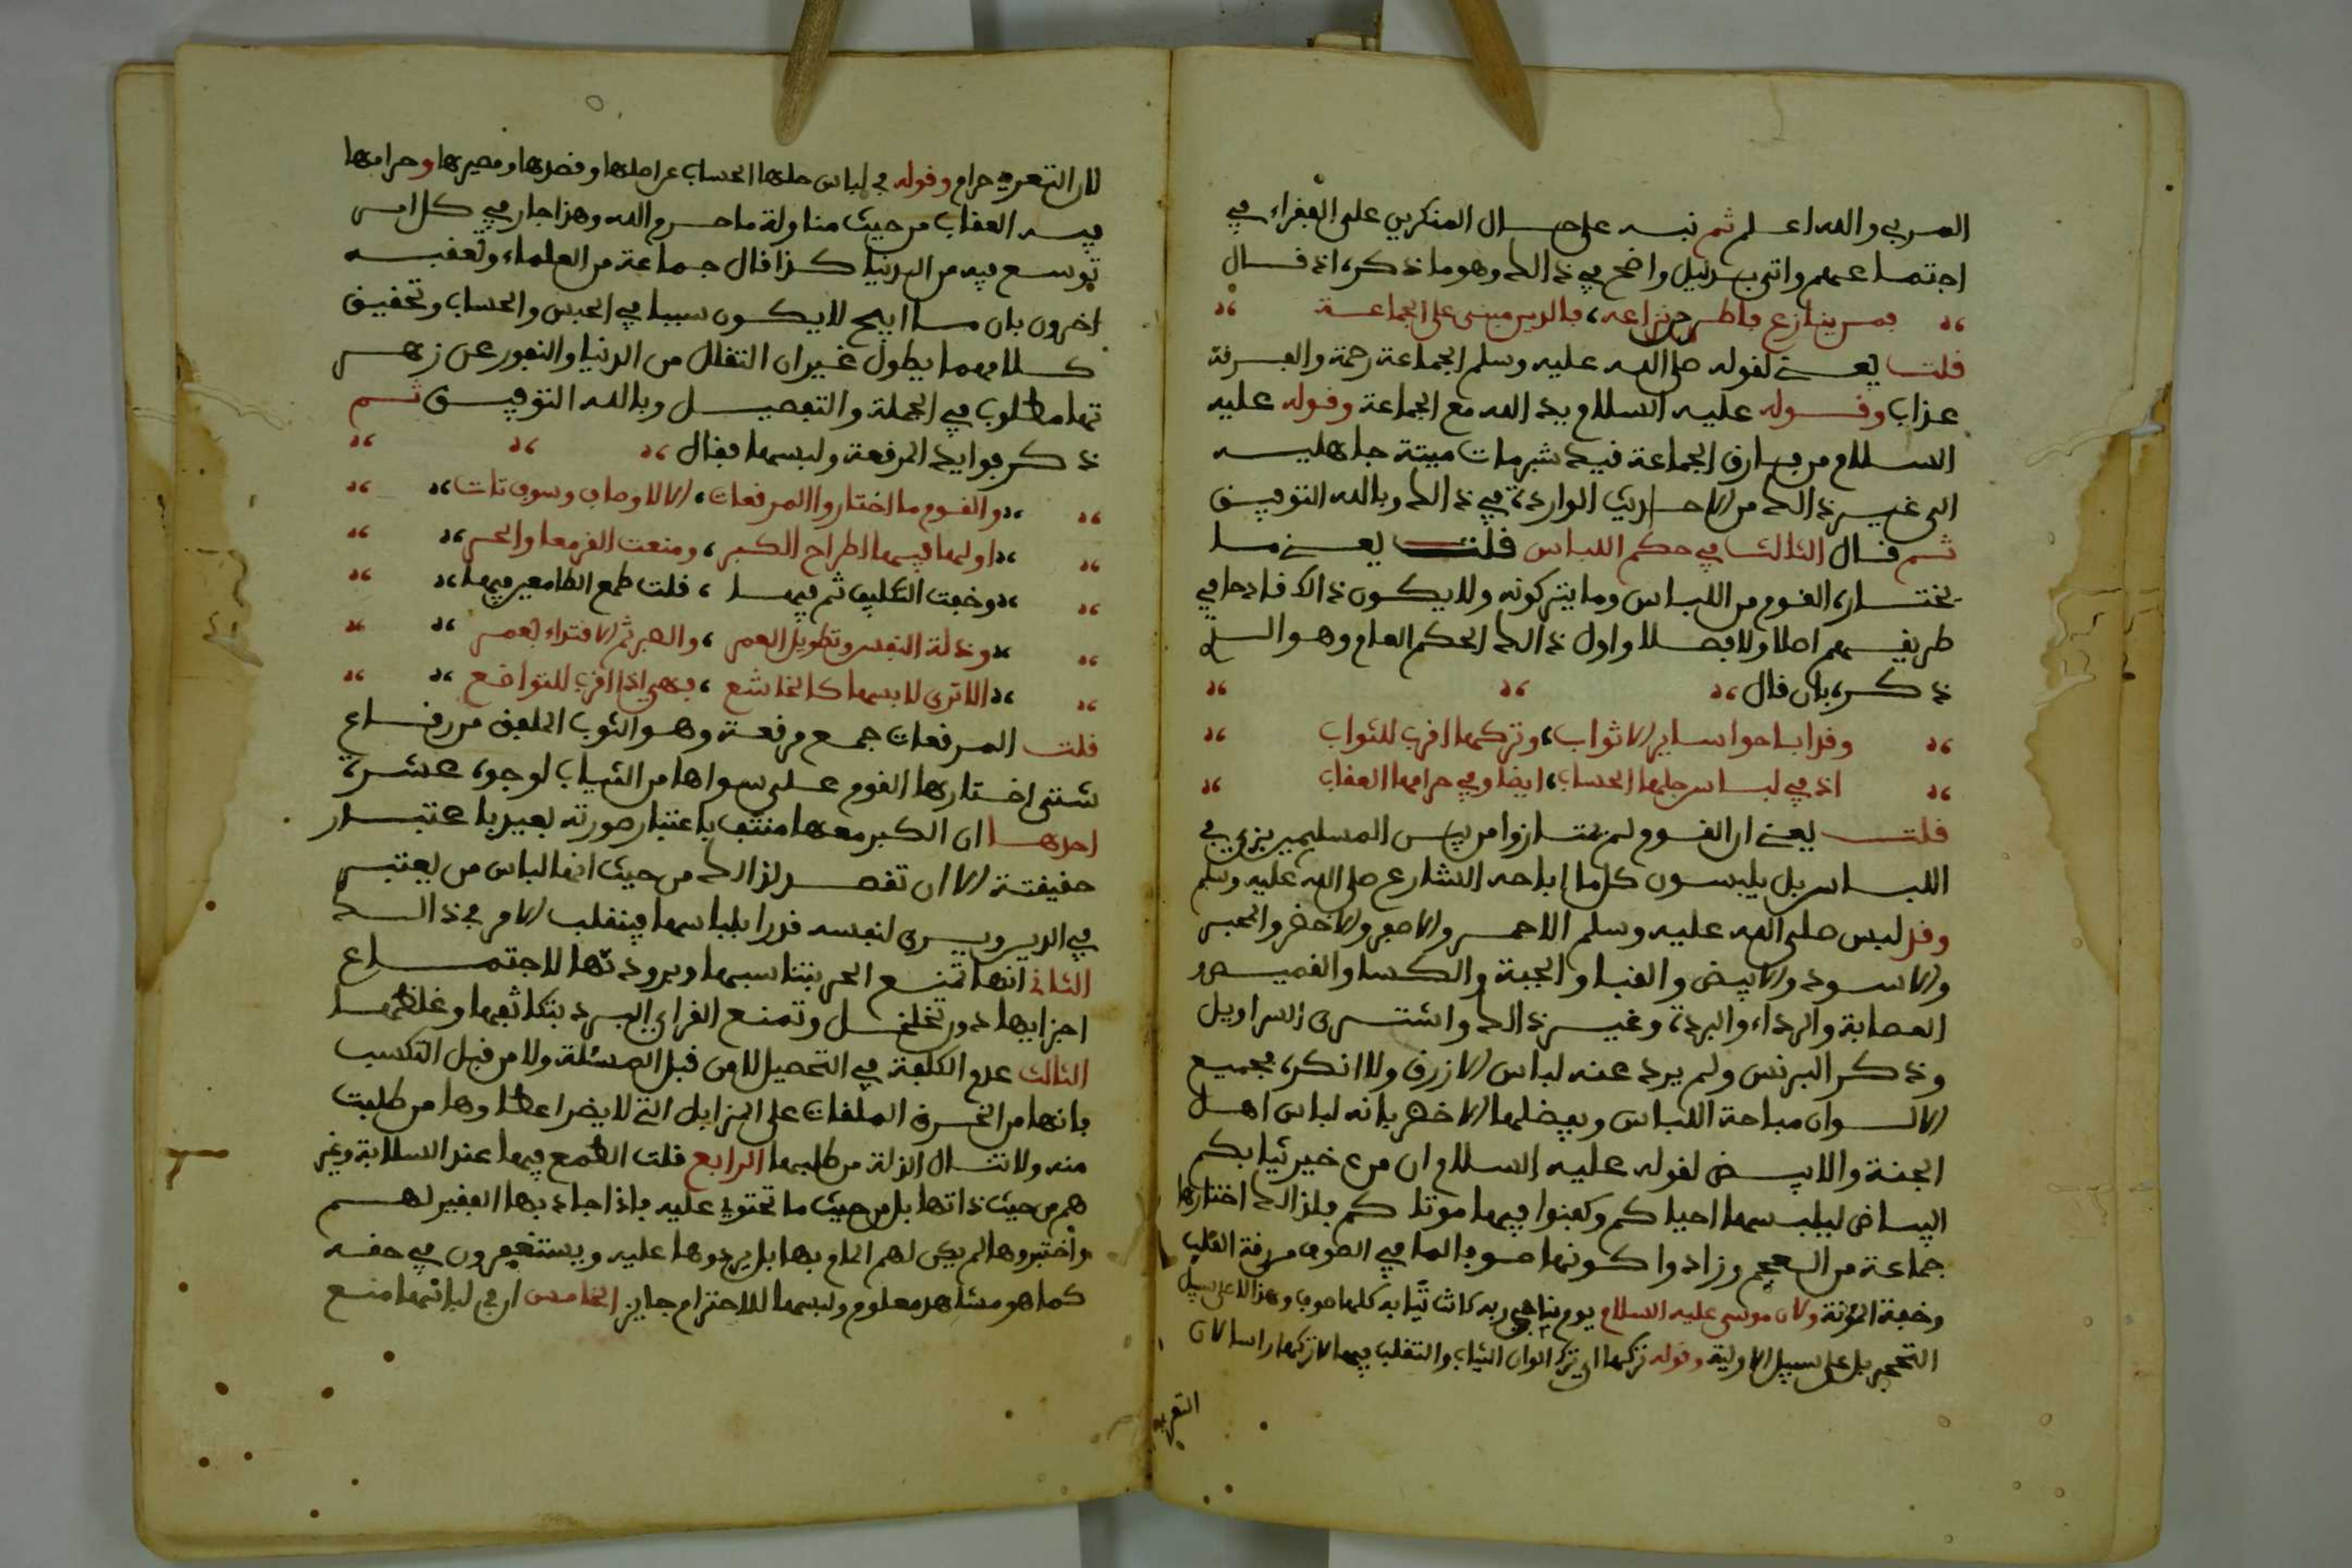 المربي والله اعلم ثم نبه على حال المنكرين على الفقراء في
اجتماعهم واتى بدليل واضح في ذالك وهو ما ذكره اذ قال
فمن ينازع فاطرحن نزاعه، فالدين مبني على الجماعة
قلت يعني لقوله صلى الله عليه وسلم الجماعة رحمة والفرقة
عذاب وقوله عليه السلام يد الله مع الجماعة وقوله عليه
السلام من فارق الجماعة قيد شبر مات ميتة جاهلية
الى غير ذالك من الاحاديث الواردة في ذالك وبالله التوفيق
ثم قال الثالث في حكم اللباس قلت يعني ما
يختاره القوم من اللباس وما يتركونه ولا يكون ذالك قادحا في
طريقهم اصلا ولا فصلا واول ذالك الحكم العام وهو الذي
ذكره بان قال
وقد اباحوا ساير الاثواب، وتركها اقرب للثواب
اذ في لباس حلها الحساب، ايضا وفي حرامها العقاب
قلت يعني ان القوم لم يمتازوا من بين المسلمين بزي في
اللباس بل يلبسون كل ما اباحه الشارع صلى الله عليه وسلم
وقد لبس صلى الله عليه وسلم الاحمر والاصفر والاخضر والحبر
والاسود والابيض والقبا والجبة والكسا والقميص
العصابة والرداء والبردة وغير ذالك واشترى السراويل
وذكر البرنس ولم يرد عنه لباس الازرق ولا انكره فجميع
الالوان مباحة اللباس وبفضلها الاخضر بانه لباس اهل
الجنة والابيض لقوله عليه السلام ان من خير ثيابكم
البياض ليلبسها احياكم وكفنوا فيها موتاكم فلذالك اختارها
جماعة من العجم وزادوا كونها صوفا لما في الصوف من رقة القلب
وخفة المؤنة ولان موسى عليه السلام يوم ناجى ربه كانت ثيابه كلها صوف وهذا لا على سبيل
التحجير بل على سبيل الاولية وقوله تركها اي ترك الوان الثياب والتقلب فيها لا تركها راسا لان
التعريه
لان التعريه حرام وقوله في لباس حلها الحساب عن اصلها وقصدها ومصيرها وحرامها
فيه العقاب من حيث مناولة ما حرم الله وهذا جار في كل امر
توسع فيه من الدنيا كذا قال جماعة من العلماء وتعقبه
اخرون بان ما ابيح لا يكون سببا في الحبس والحساب وتحقيق
كلامهما يطول غير ان التقلل من الدنيا والنفور عن زهر
تها مطلوب في الجملة والتفصيل وبالله التوفيق ثم
ذكر فوايد المرقعة ولبسها فقال
والقوم ما اختاروا المرقعات، الا لاوصاف وسوف تات
اولها فيها اطراح الكبر، ومنعها القر معا والحر
وخفت التكليف ثم فيها، قلت طمع الطامعين فيها
وذلة النفس وتطويل العمر، والصبر ثم الاقتداء بعمر
الا ترى لابسها كالخاشع، فهي اذا اقرب للتواضع
قلت المرقعات جمع مرقعة وهو الثوب الملفق من رقاع
شتى اختارها القوم على سواها من الثياب لوجوه عشرة
احدها ان الكبر معها منتف باعتبار صورته بعيد باعتبار
حقيقته الا ان تقصد لذالك من حيث انها لباس من يعتبر
في الدين ويرى لنفسه قدرا بلباسها فينقلب الامر في ذالك
الثاني انها تمنع الحر بتناسبها وبرودتها لاجتماع
اجزايها دون تخلخل وتمنع القراي البرد بتكاثفها وغلظها
الثالث عدم الكلفة في التحصيل لا من قبل المسئلة ولا من قبل التكسب
فانها من الخرق الملقات على المزابل التي لا يضر اعطاوها من طلبت
منه ولا تنال الذلة من طلبها الرابع قلت الطمع فيها عند السلابة وغير
هم من حيث ذاتها بل من حيث ما تحتوي عليه فاذا جاد بها الفقير لهم
واختبروها لم يكن لهم المام بها بل يردوها عليه ويستغفرون في حقه
كما هو مشاهد معلوم ولبسها للاحترام جايز الخامس ان في لباسها منع